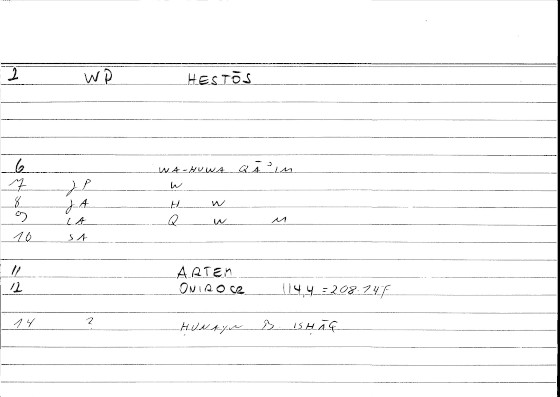 2 WP HESTŌS
6 WA-HUWA QĀʾIM
7 JP W
8 JA H W
9 LA Q W M
10 SA
11 ARTEM
12 ONIROCR 114,4 = 208.14F
14 ? HUNAYN B ISHĀQ